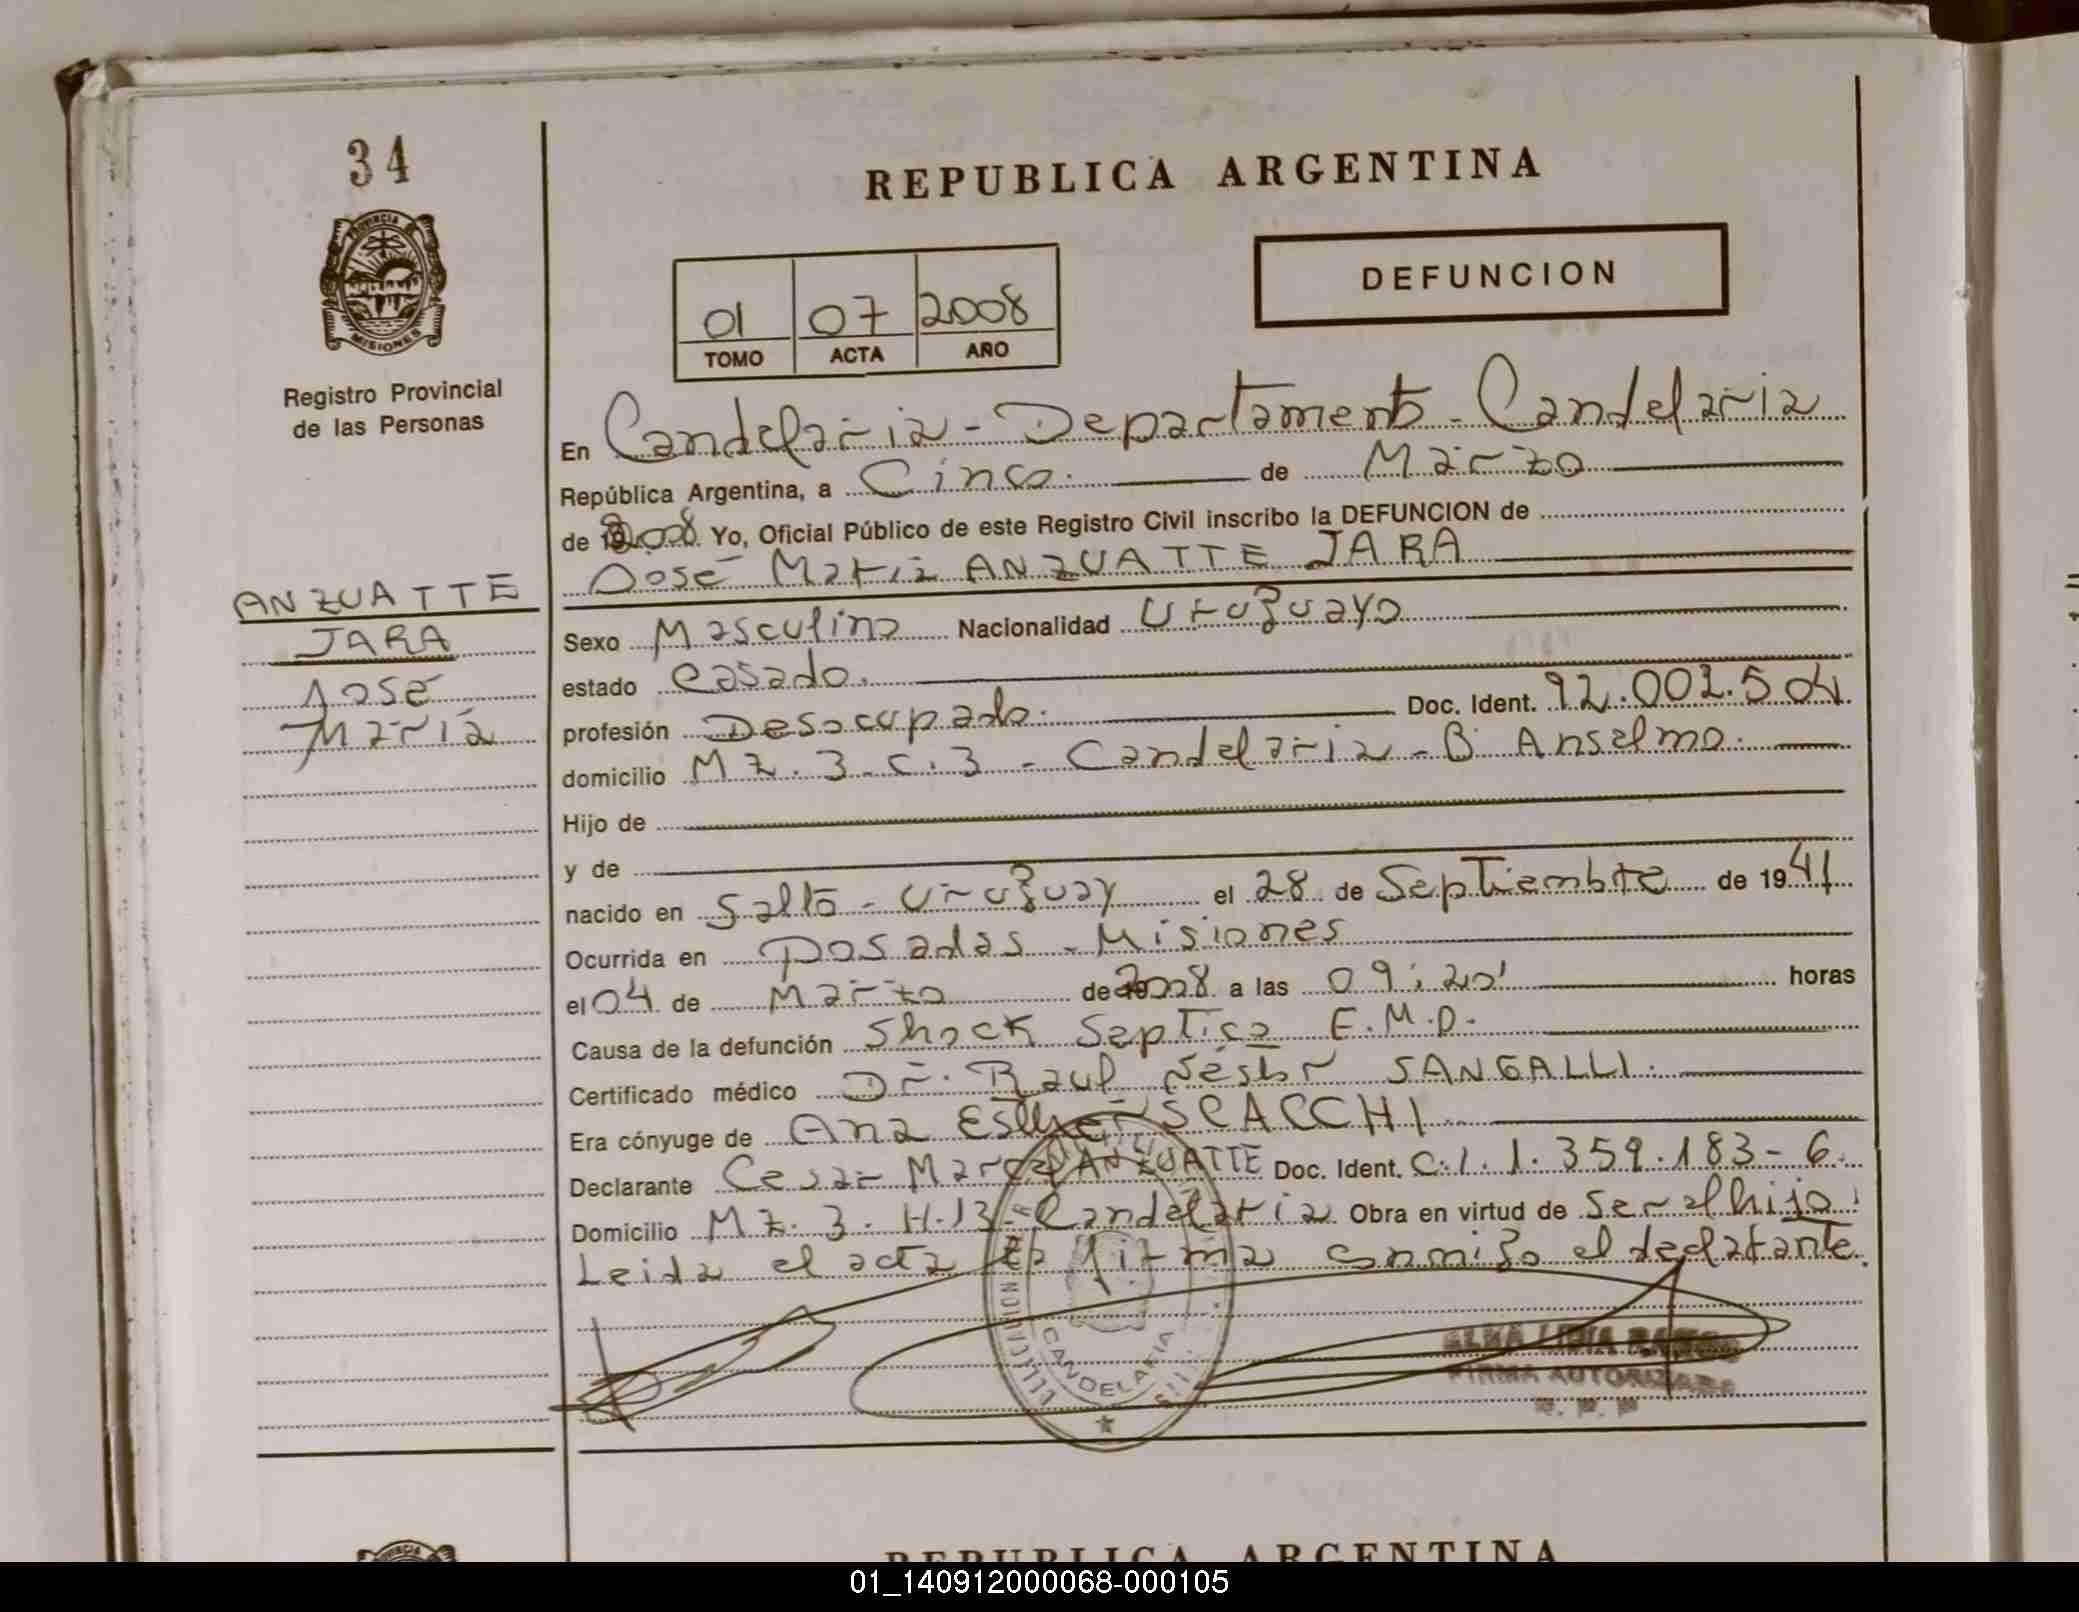 34
REPUBLICA ARGENTINA
PROVINCIA
MISIONES
Registro Provincial
de las Personas
01 07 2008
TOMO ACTA AÑO
DEFUNCION
En Candelaria - Departamento - Candelaria
República Argentina, a Cinco. de Marzo
de 2008 Yo, Oficial Público de este Registro Civil inscribo la DEFUNCION de
José María ANZUATTE JARA
ANZUATTE
JARA
José
María
Sexo Masculino Nacionalidad Uruguayo
estado Casado.
profesión Desocupado. Doc. Ident. 92.002.504.
domicilio Mz. 3 - c. 3 - Candelaria - B. Anselmo.
Hijo de
y de
nacido en Salto - Uruguay el 28 de Septiembre de 1941
Ocurrida en Posadas - Misiones
el 04 de Marzo de 2008 a las 09:20' horas
Causa de la defunción Shock Septico E.M.O.
Certificado médico Dr. Raul Néstor SANGALLI.
Era cónyuge de Ana Esther SCACCHI
Declarante Cesar Marcel ANZUATTE Doc. Ident. C.I. 1.359.183-6.
Domicilio Mz. 3. H.13 - Candelaria Obra en virtud de Ser el hijo.
Leida el acta la firma conmigo el declarante.
CANDELARIA
ALBA LIDIA RAMOS
FIRMA AUTORIZADA
R. P. P.
REPUBLICA ARGENTINA
01_140912000068-000105